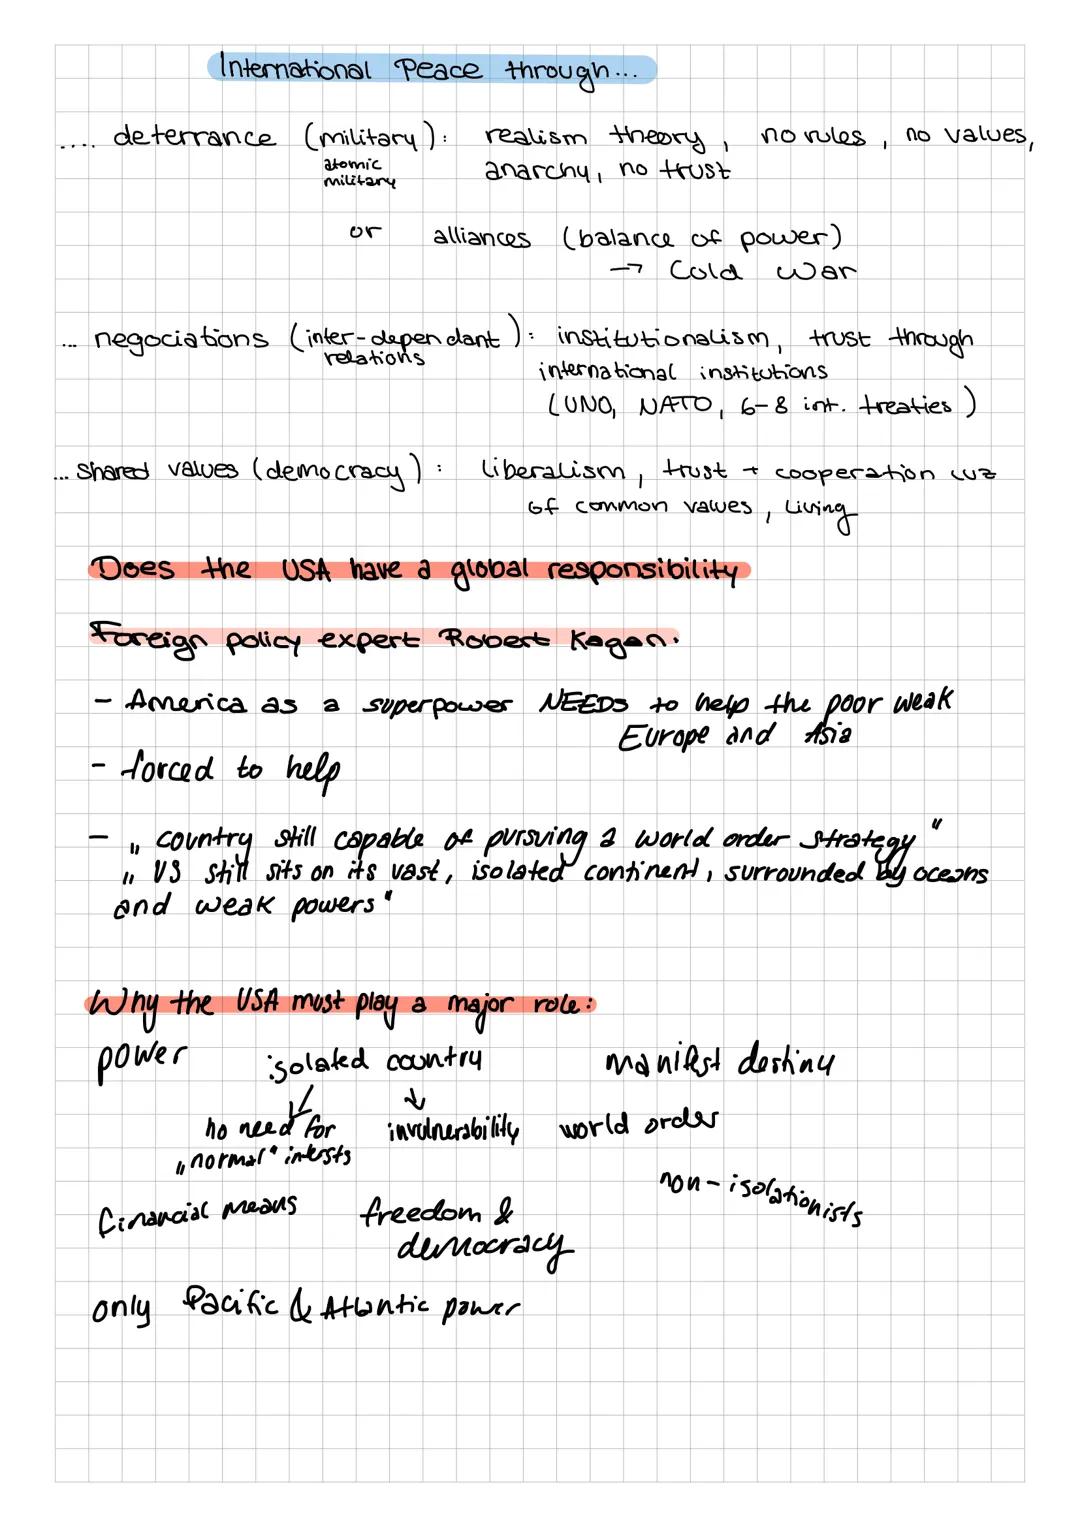 International Peace through...
.... deterrance (military): realism theory, no rules, no values,
atomic anarchy, no trust
military
or alliances (balance of power)
→ Cold War
... negociations (inter-dependant): institutionalism, trust through
relations
international institutions
(UNO, NATO, 6-8 int. treaties)
... shared values (democracy): liberalism, trust + cooperation cuz
of common values, living
Does the USA have a global responsibility
Foreign policy expert Robert Kagan.
- America as a superpower NEEDS to help the poor weak
Europe and Asia
- forced to help
- „country still capable of pursuing a world order strategy"
„US still sits on its vast, isolated continent, surrounded by oceans
and weak powers"
Why the USA must play a major role:
power isolated country manifest destiny
no need for invulnerability world order
„normal" intersts
non-isolationists
financial means freedom &
democracy
only Pacific & Atlantic power